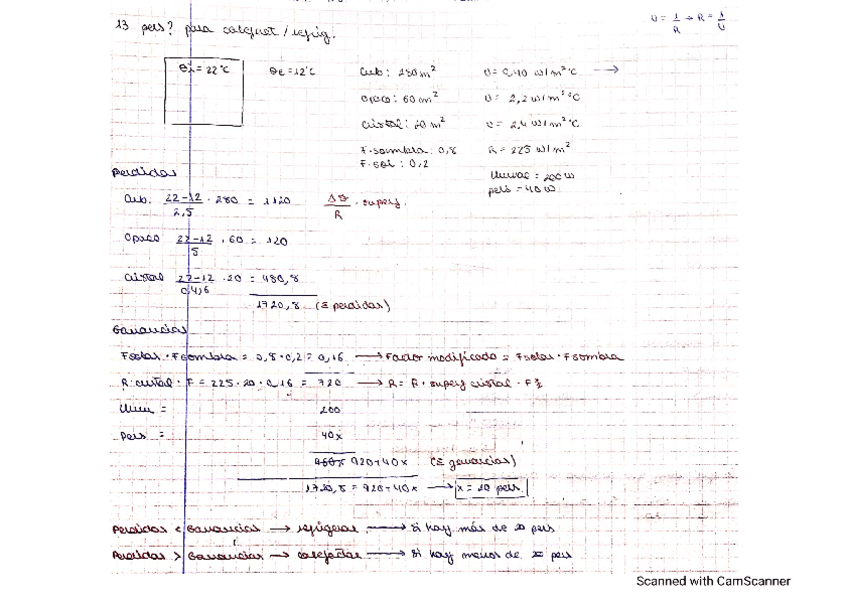 U = 1/R → R = 1/U
13 pers? para calefact / refrig.
θi = 22°C θe = 12°C Cub: 280 m² U = 0,40 W/m²°C →
Opaco: 60 m² U = 2,2 W/m²°C
Cristal: 20 m² U = 2,4 W/m²°C
F. sombra: 0,8 R = 225 W/m²
F. sol: 0,2
= 200 W
pers = 40 W
Perdidas
Cub. 22-12/2,5 · 280 = 1120 Δθ/R · superf.
Opaco 22-12/5 · 60 = 120
Cristal 22-12/0,416 · 20 = 480,8
1720,8 (Σ perdidas)
Ganancias
Fsolar · Fsombra = 0,8 · 0,2 = 0,16 → Factor modificado = Fsolar · Fsombra
R. cristal · F = 225 · 20 · 0,16 = 720 → R = R · superf cristal · F
Ilum = 200
Pers = 40x
920+40x (Σ ganancias)
1720,8 = 920+40x → x = 20 pers
Perdidas < Ganancias → refrigerar → Si hay más de 20 pers
Perdidas > Ganancias → calefactar → Si hay menos de 20 pers
Scanned with CamScanner